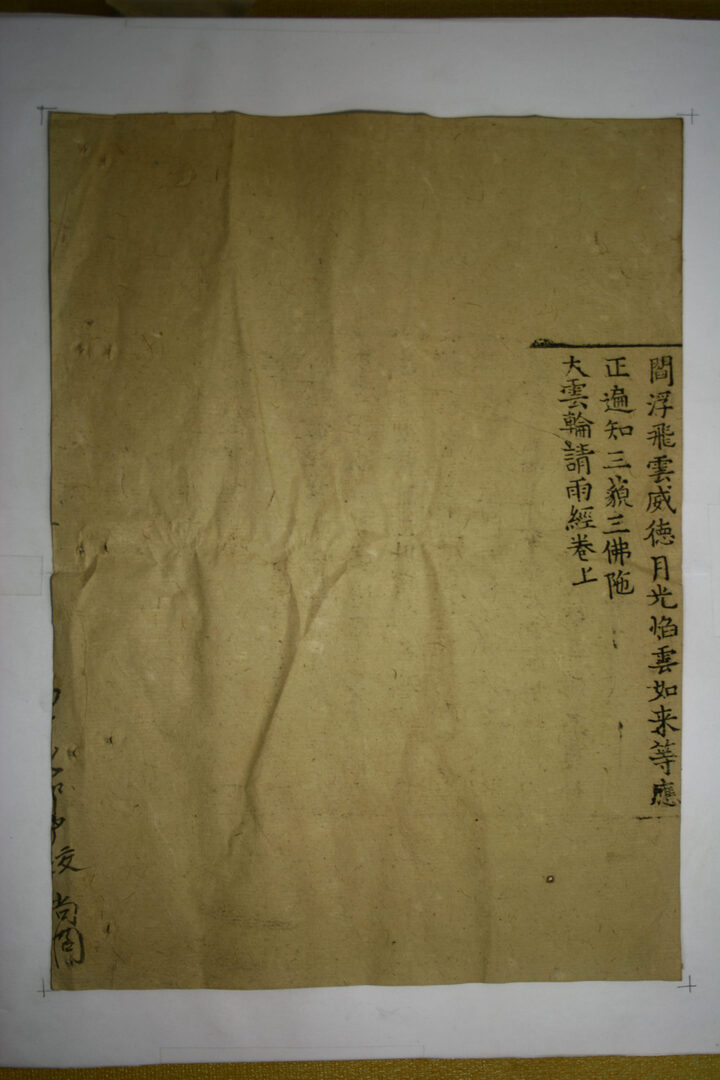 閻浮飛雲威徳月光焰雲如来等應
正遍知三藐三佛陁
大雲輪請雨經卷上